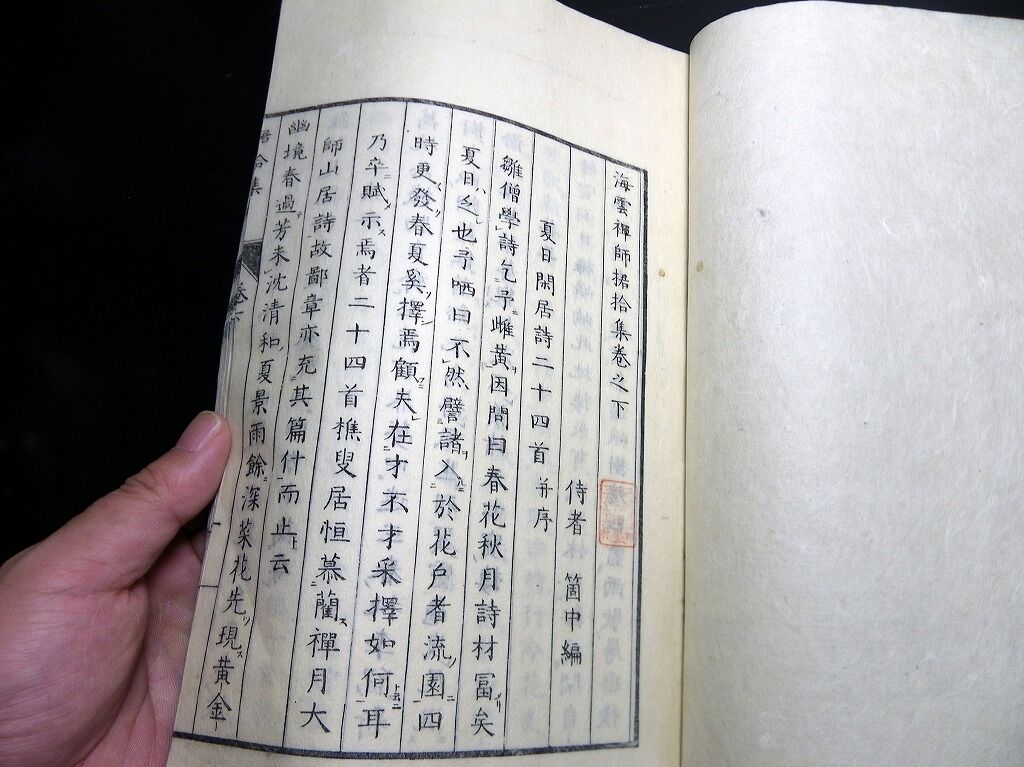 海雲禪師捃拾集卷之下
侍者 箇中編
夏日閑居詩二十四首并序
雛僧學詩乞予雌黃因問曰春花秋月詩材冨矣
夏日乏也予哂曰不然譬諸入於花戶者流園四
時更發春夏奚擇焉顧夫在才不才采擇如何耳
乃卒賦示焉者二十四首樵叟居恒慕蘭禪月大
師山居詩故鄙章亦充其篇什而止云
幽境春過芳未沈清和夏景雨餘深菜花先現黃金